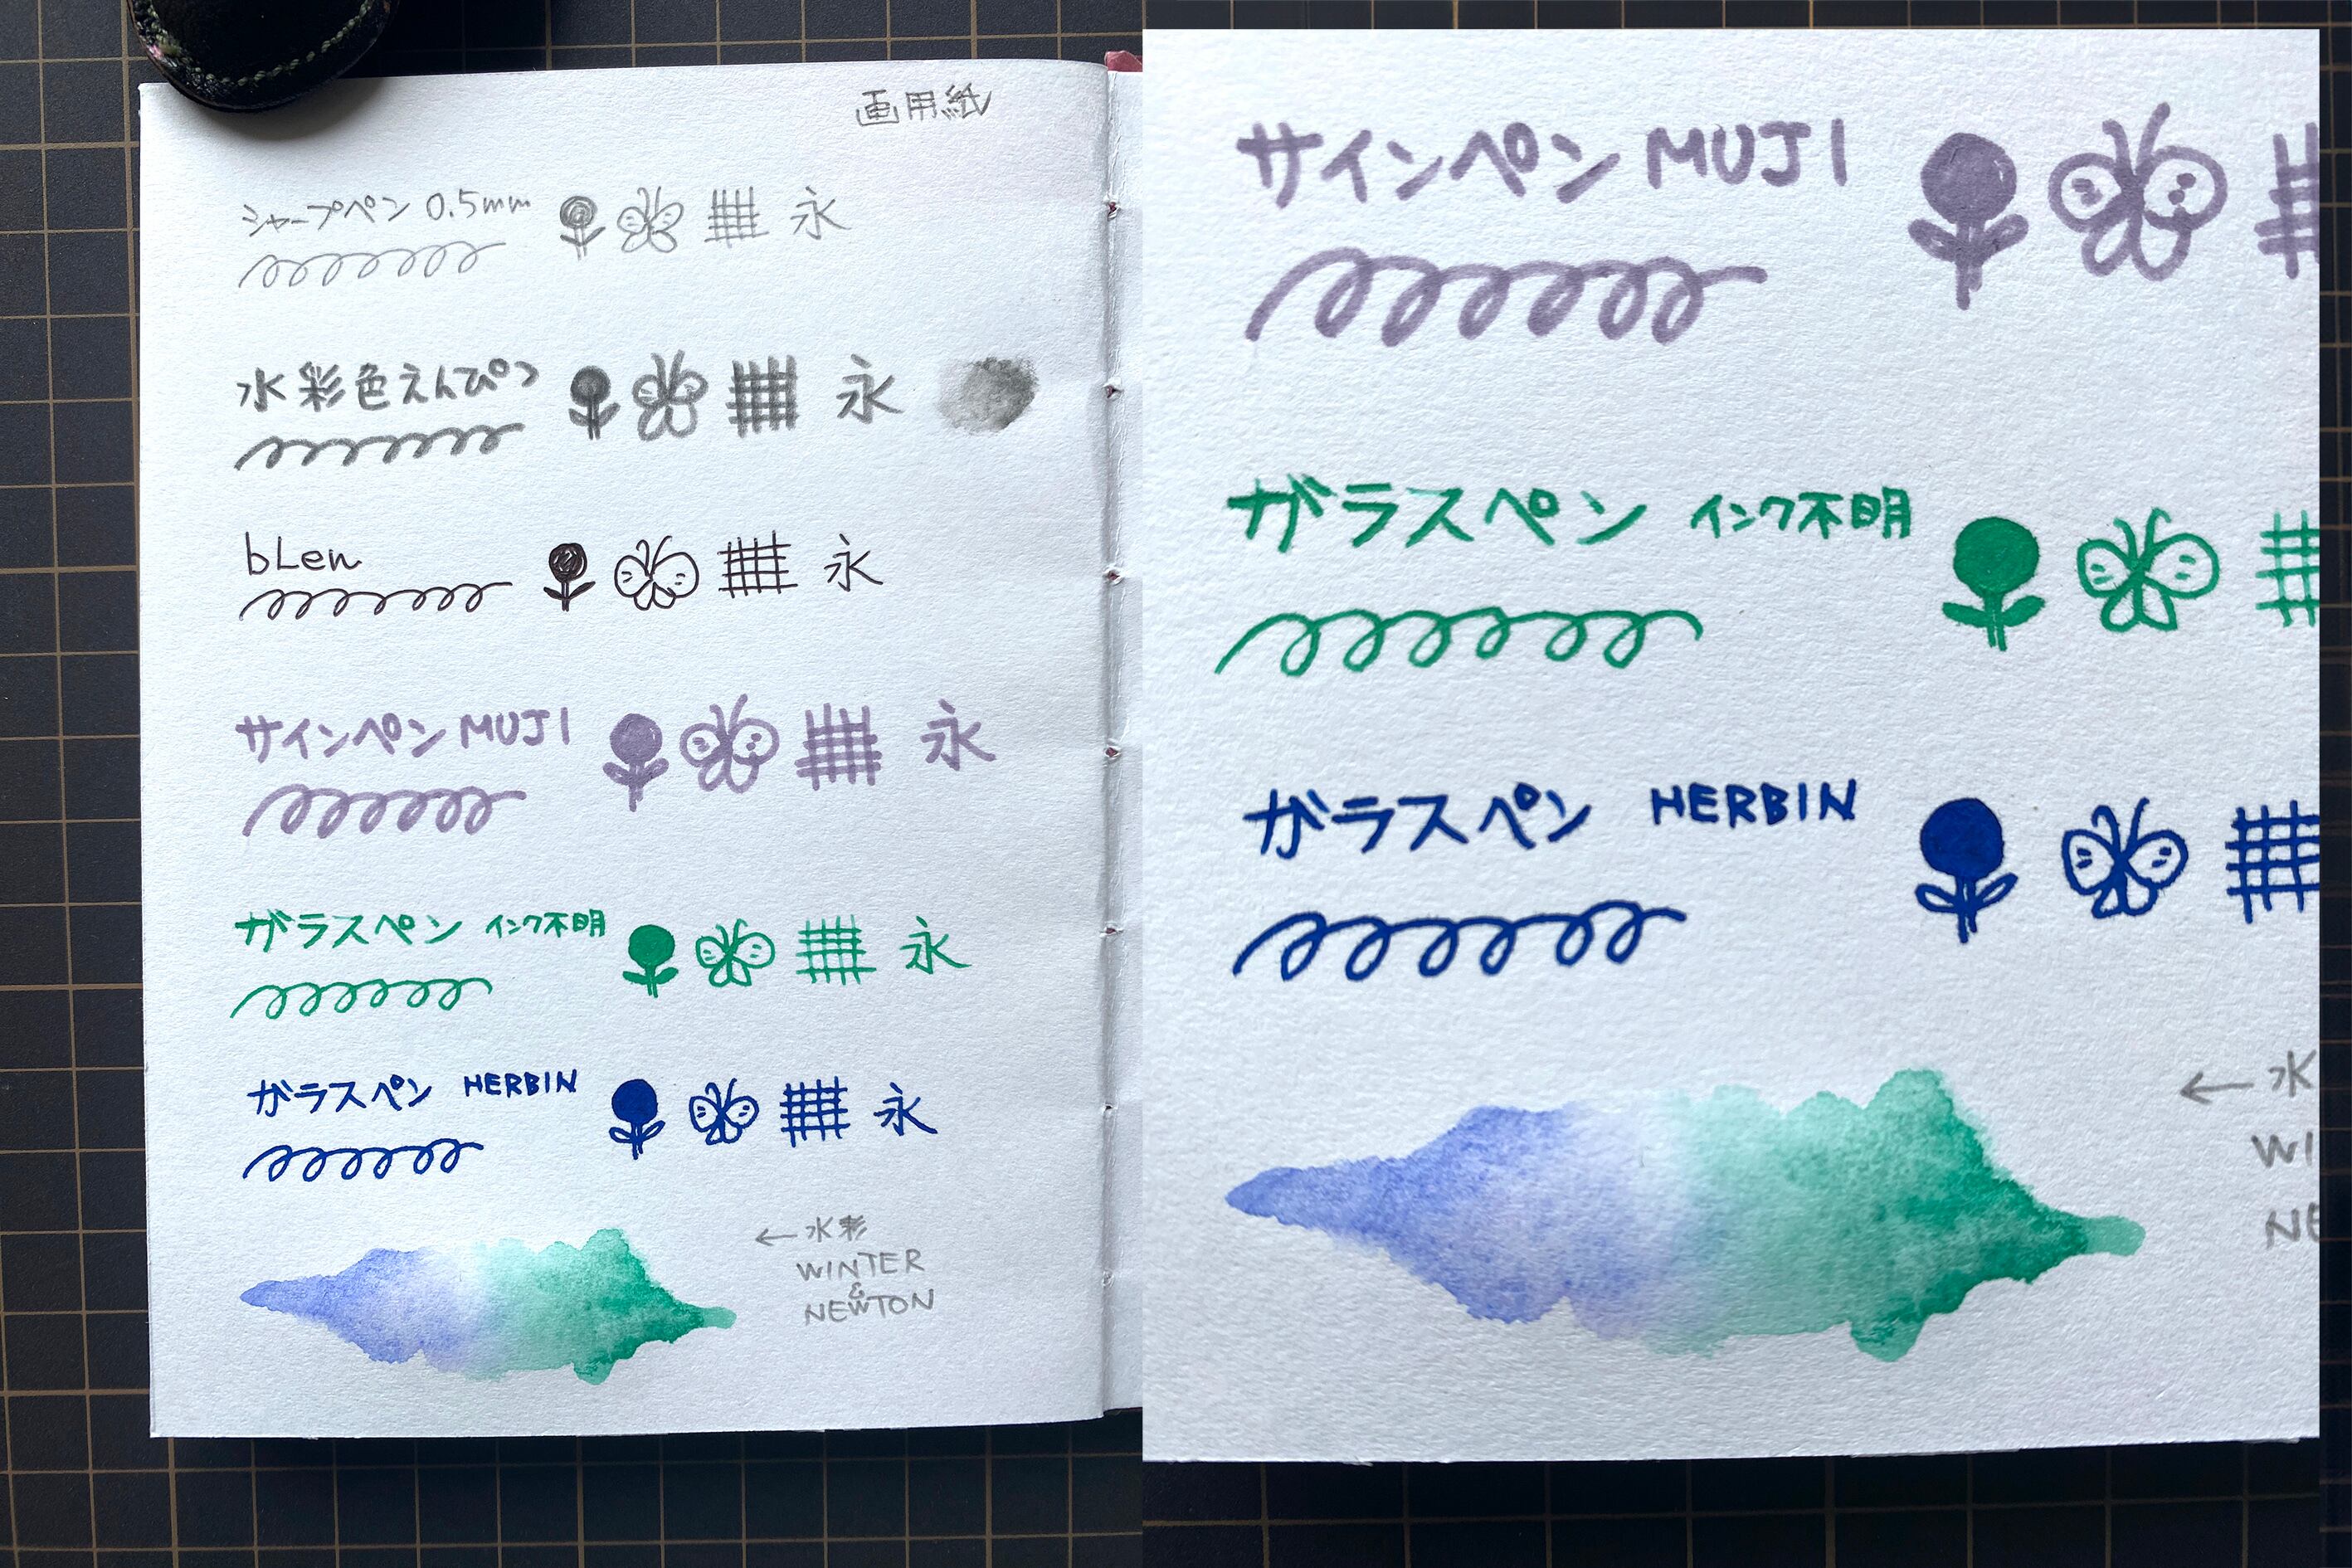 画用紙
シャープペン 0.5mm 永
水彩色えんぴつ 永
bLen 永
サインペン MUJI 永
ガラスペン インク不明 永
ガラスペン HERBIN 永
← 水彩
WINTER
&
NEWTON
サインペン MUJI
ガラスペン インク不明
ガラスペン HERBIN
← 水
WI
NE